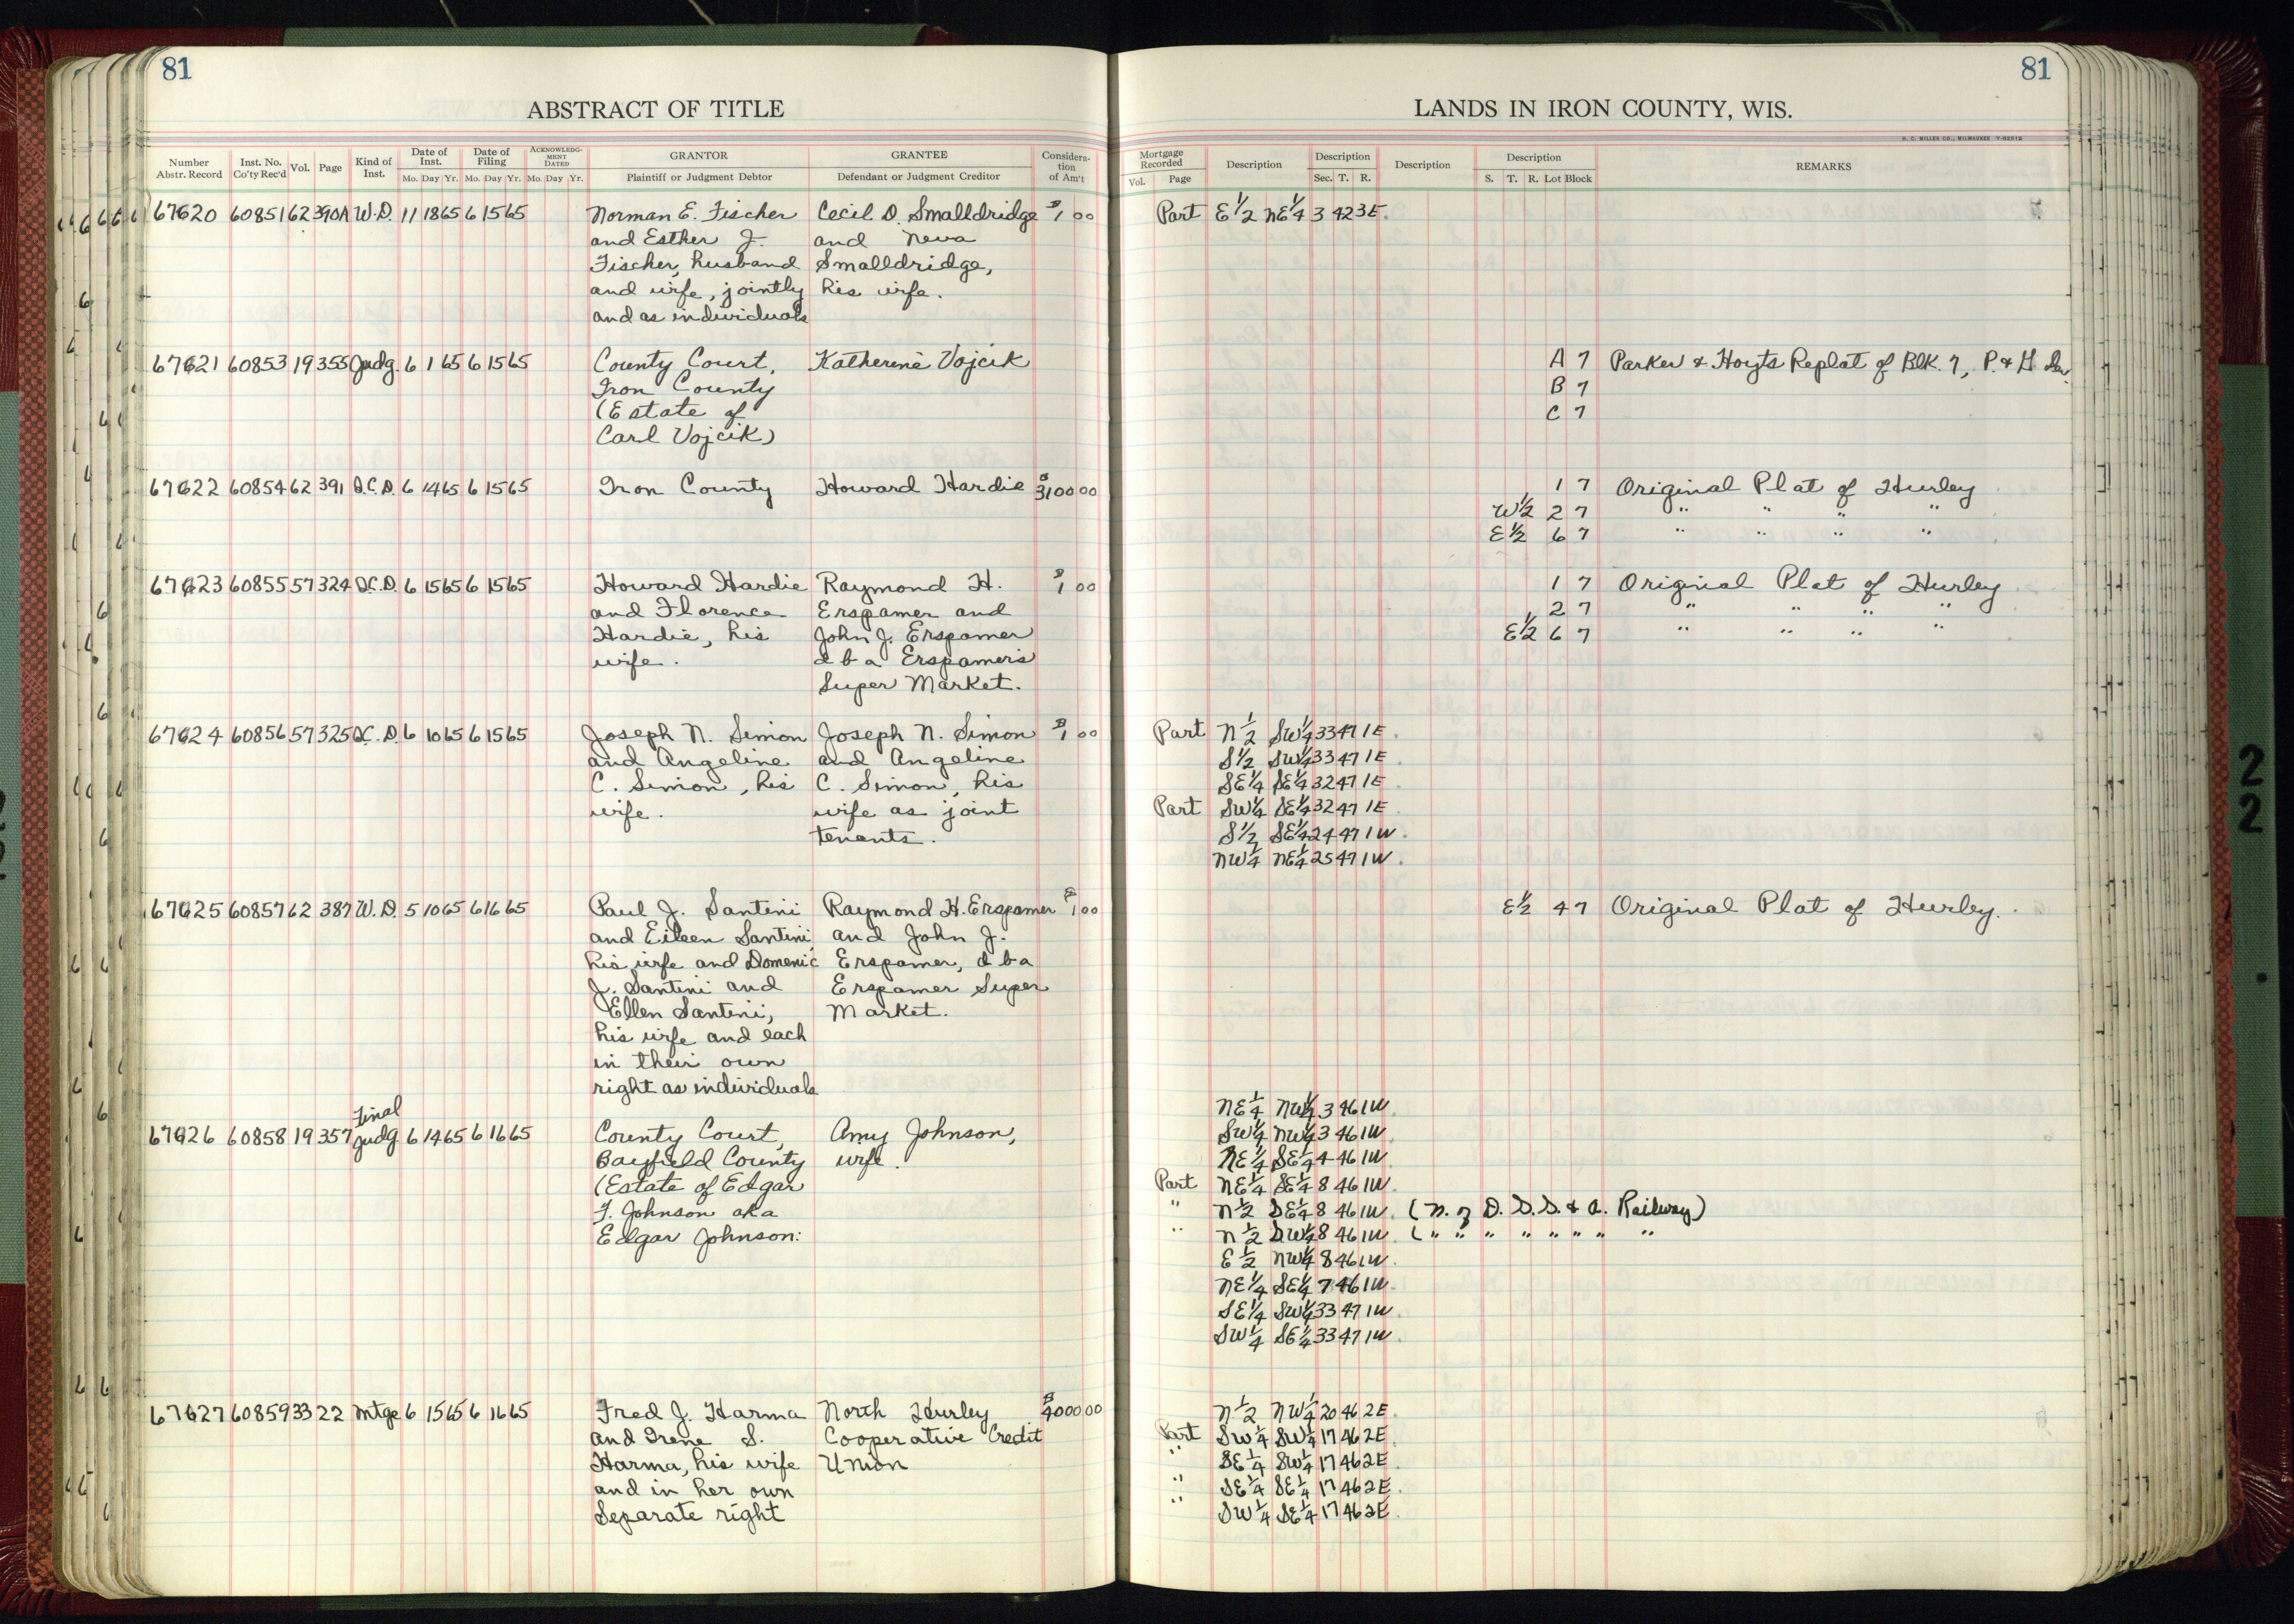 81
ABSTRACT OF TITLE
Number Abstr. Record
Inst. No. Co'ty Rec'd
Vol.
Page
Kind of Inst.
Date of Inst. Mo. Day Yr.
Date of Filing Mo. Day Yr.
ACKNOWLEDG-MENT DATED Mo. Day Yr.
GRANTOR Plaintiff or Judgment Debtor
GRANTEE Defendant or Judgment Creditor
Considera-tion of Am't
81
LANDS IN IRON COUNTY, WIS.
H. C. MILLER CO., MILWAUKEE
Mortgage Recorded Vol. Page
Description
Description Sec. T. R.
Description
Description S. T. R. Lot Block
REMARKS
67620 60851 62 390A W.D. 11 18 65 6 15 65 Norman E. Fischer Cecil D. Smalldridge $1 00 Part E 1/2 NE 1/4 3 42 3E.
and Esther J. and Neva
Fischer, husband Smalldridge,
and wife, jointly his wife.
and as individuals
67621 60853 19 355 Judg. 6 1 65 6 15 65 County Court, Katherine Vojcik A 7 Parker & Hoyts Replat of Blk. 7, P. & H
Iron County B 7
(Estate of C 7
Carl Vojcik)
67622 60854 62 391 Q.C.D. 6 14 65 6 15 65 Iron County Howard Hardie $3100 00 1 7 Original Plat of Hurley
W 1/2 2 7 " " " "
E 1/2 6 7 " " " "
67623 60855 57 324 Q.C.D. 6 15 65 6 15 65 Howard Hardie Raymond H. $1 00 1 7 Original Plat of Hurley
and Florence Erspamer and 2 7 " " " "
Hardie, his John J. Erspamer E 1/2 6 7 " " " "
wife. d b a Erspamer's
Super Market.
67624 60856 57 325 Q.C.D. 6 10 65 6 15 65 Joseph N. Simon Joseph N. Simon $1 00 Part N 1/2 SW 1/4 33 47 1E.
and Angeline and Angeline S 1/2 SW 1/4 33 47 1E.
C. Simon, his C. Simon, his SE 1/4 SE 1/4 32 47 1E
wife. wife as joint Part SW 1/4 SE 1/4 32 47 1E.
tenants. S 1/2 SE 1/4 24 47 1W.
NW 1/4 NE 1/4 25 47 1W.
67625 60857 62 387 W.D. 5 10 65 6 16 65 Paul J. Santini Raymond H. Erspamer $1 00 E 1/2 4 7 Original Plat of Hurley.
and Eileen Santini, and John J.
his wife and Domenic Erspamer, d b a
J. Santini and Erspamer Super
Ellen Santini, Market.
his wife and each
in their own
right as individuals
Final NE 1/4 NW 1/4 3 46 1W.
67626 60858 19 357 Judg 6 14 65 6 16 65 County Court, Amy Johnson, SW 1/4 NW 1/4 3 46 1W.
Bayfield County wife. NE 1/4 SE 1/4 4 46 1W
(Estate of Edgar Part NE 1/4 SE 1/4 8 46 1W.
F. Johnson aka " N 1/2 SE 1/4 8 46 1W. (N. of D. S. S. & A. Railway)
Edgar Johnson: " N 1/2 SW 1/4 8 46 1W. ( " " " " " " " "
E 1/2 NW 1/4 8 46 1W.
NE 1/4 SE 1/4 7 46 1W.
SE 1/4 SW 1/4 33 47 1W.
SW 1/4 SE 1/4 33 47 1W.
67627 60859 33 22 Mtge 6 15 65 6 16 65 Fred J. Harma North Hurley $4000 00 N 1/2 NW 1/4 20 46 2E.
and Irene S. Cooperative Credit Part SW 1/4 SW 1/4 17 46 2E.
Harma, his wife Union " SE 1/4 SW 1/4 17 46 2E.
and in her own " SE 1/4 SE 1/4 17 46 2E.
Separate right " SW 1/4 SE 1/4 17 46 2E.